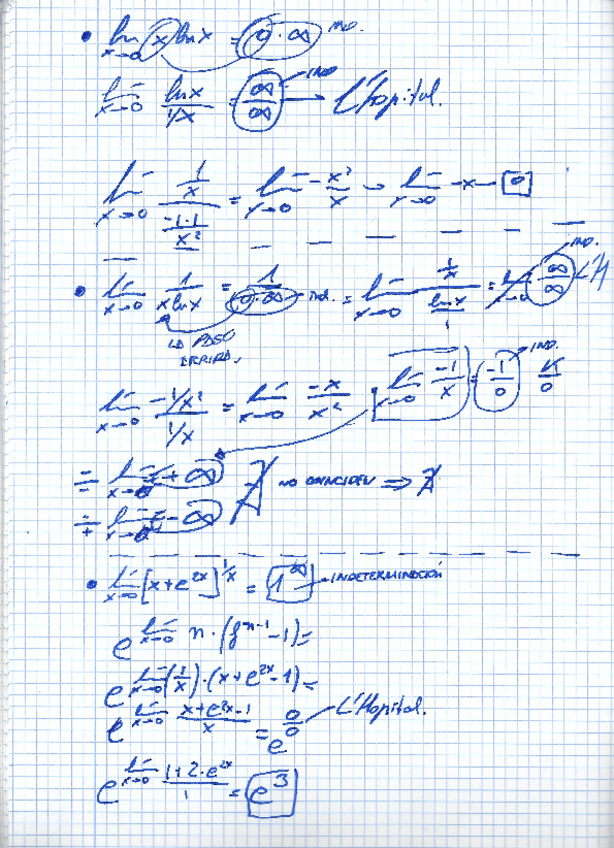 • lim x→0 x lnx = 0·∞ IND.
lim x→0 lnx / 1/x = ∞/∞ IND → L'Hopital.
lim x→0 (1/x) / (-1·1/x²) = lim x→0 -x²/x → lim x→0 -x → 0
• lim x→0 1/(x lnx) = 1/(0·∞) → ind. = lim x→0 (1/x)/(lnx/1) = lim x→0 ∞/∞ IND. L'H
LO PASO
ARRIBA.
lim x→0 (-1/x²)/(1/x) = lim x→0 -x/x² = lim x→0 -1/x = -1/0 IND. K/0
lim x→0 = +∞ ∄ NO COINCIDEN ⇒ ∄
lim x→0 = -∞
• lim x→0 [x+e^2x]^1/x = 1^∞ INDETERMINACIÓN
e^lim x→0 n·(f^n-1 -1)=
e^lim x→0 (1/x)·(x+e^2x-1)=
e^lim x→0 (x+e^2x-1)/x = e^0/0 L'Hopital.
e^lim x→0 (1+2·e^2x)/1 = e^3